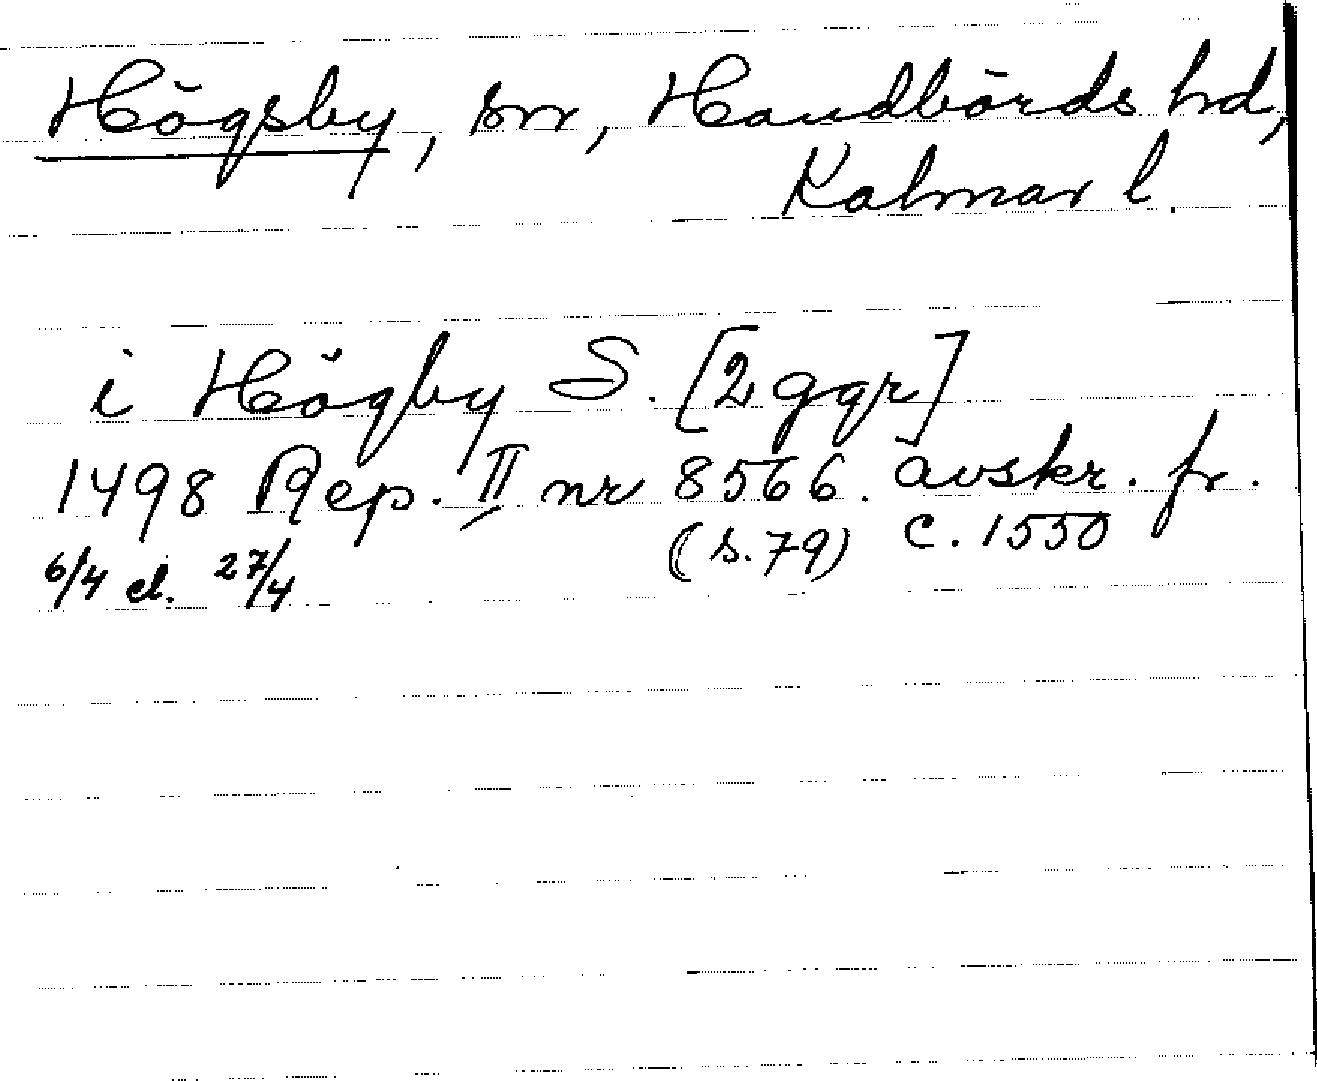 Högsby, sn, Handbörds hd,
Kalmar l.
i Högby S. [2 ggr]
1498 Rep. II nr 8566. avskr. fr.
(s. 79) c. 1550
6/4 el. 27/4